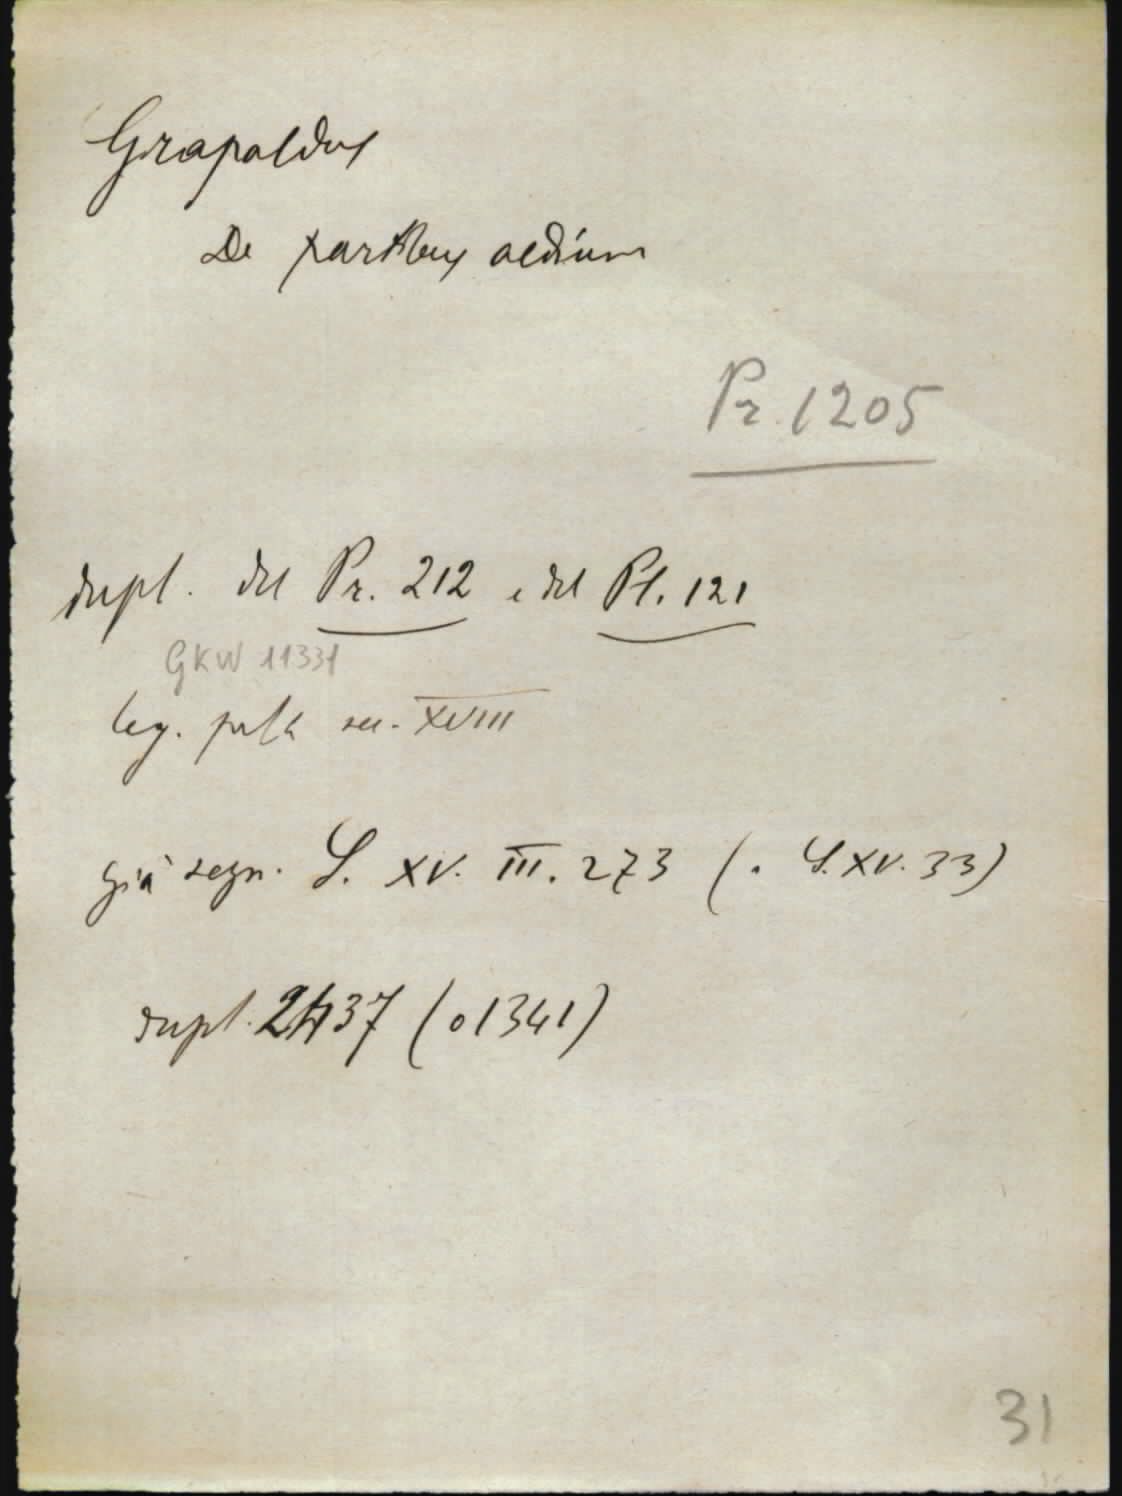 Grapaldus
De partibus aedium
Pr. 1205
dupl. del Pr. 212 e del Pl. 121
GKW 11331
leg. perg. sec. XVIII
già segn. S. XV. III. 273 (. S. XV. 33)
dupl. 2437 (o 1341)
31